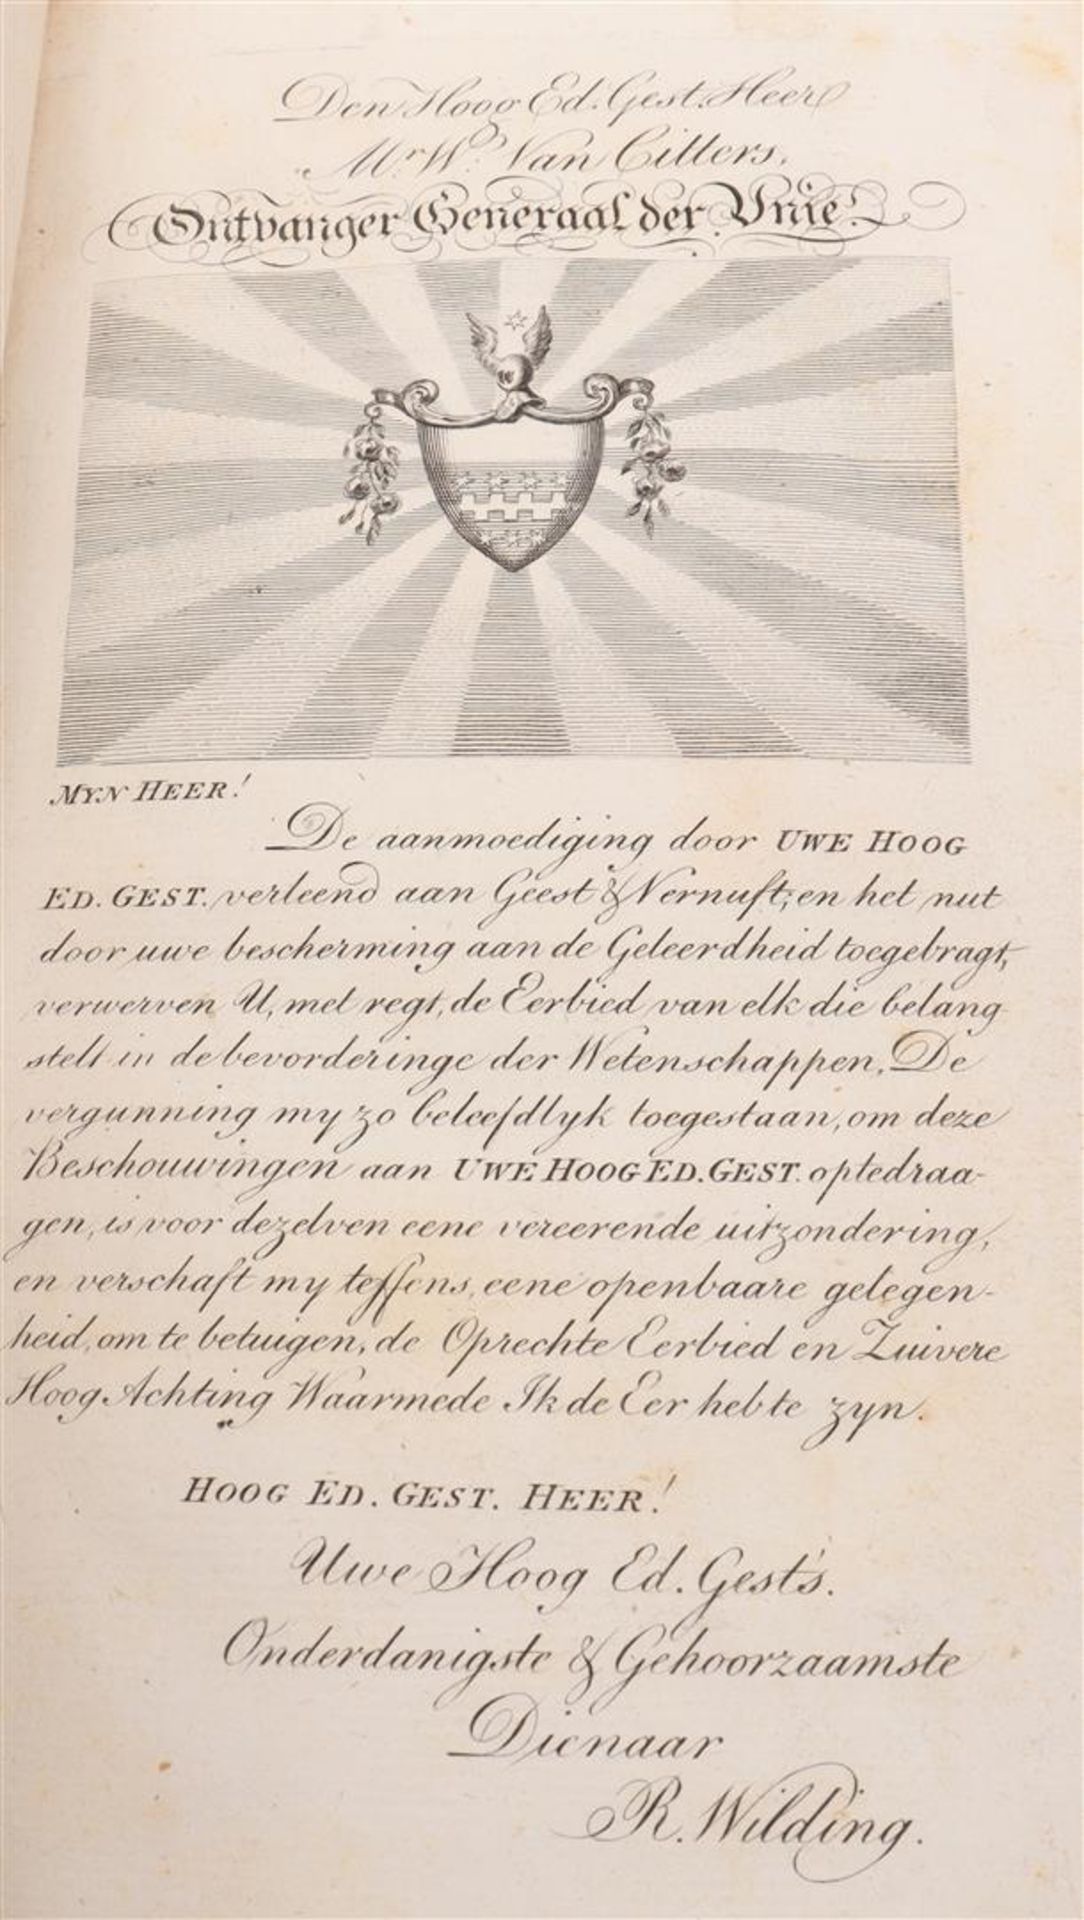 Den Hoog Ed. Gest. Heer
Mr. W. Van Citters,
Ontvanger Generaal der Unie.
MYN HEER!
De aanmoediging door UWE HOOG
ED. GEST. verleend aan Geest & Vernuft; en het nut
door uwe bescherming aan de Geleerdheid toegebragt,
verwerven U, met regt, de Eerbied van elk die belang
stelt in de bevorderinge der Wetenschappen. De
vergunning my zo beleefdlyk toegestaan, om deze
Beschouwingen aan UWE HOOG ED. GEST. optedraa-
gen, is voor dezelven eene vereerende uitzondering,
en verschaft my teffens, eene openbaare gelegen-
heid, om te betuigen, de Oprechte Eerbied en Zuivere
Hoog Achting Waarmede Ik de Eer heb te zyn.
HOOG ED. GEST. HEER!
Uwe Hoog Ed. Gest's.
Onderdanigste & Gehoorzaamste
Dienaar
R. Wilding.